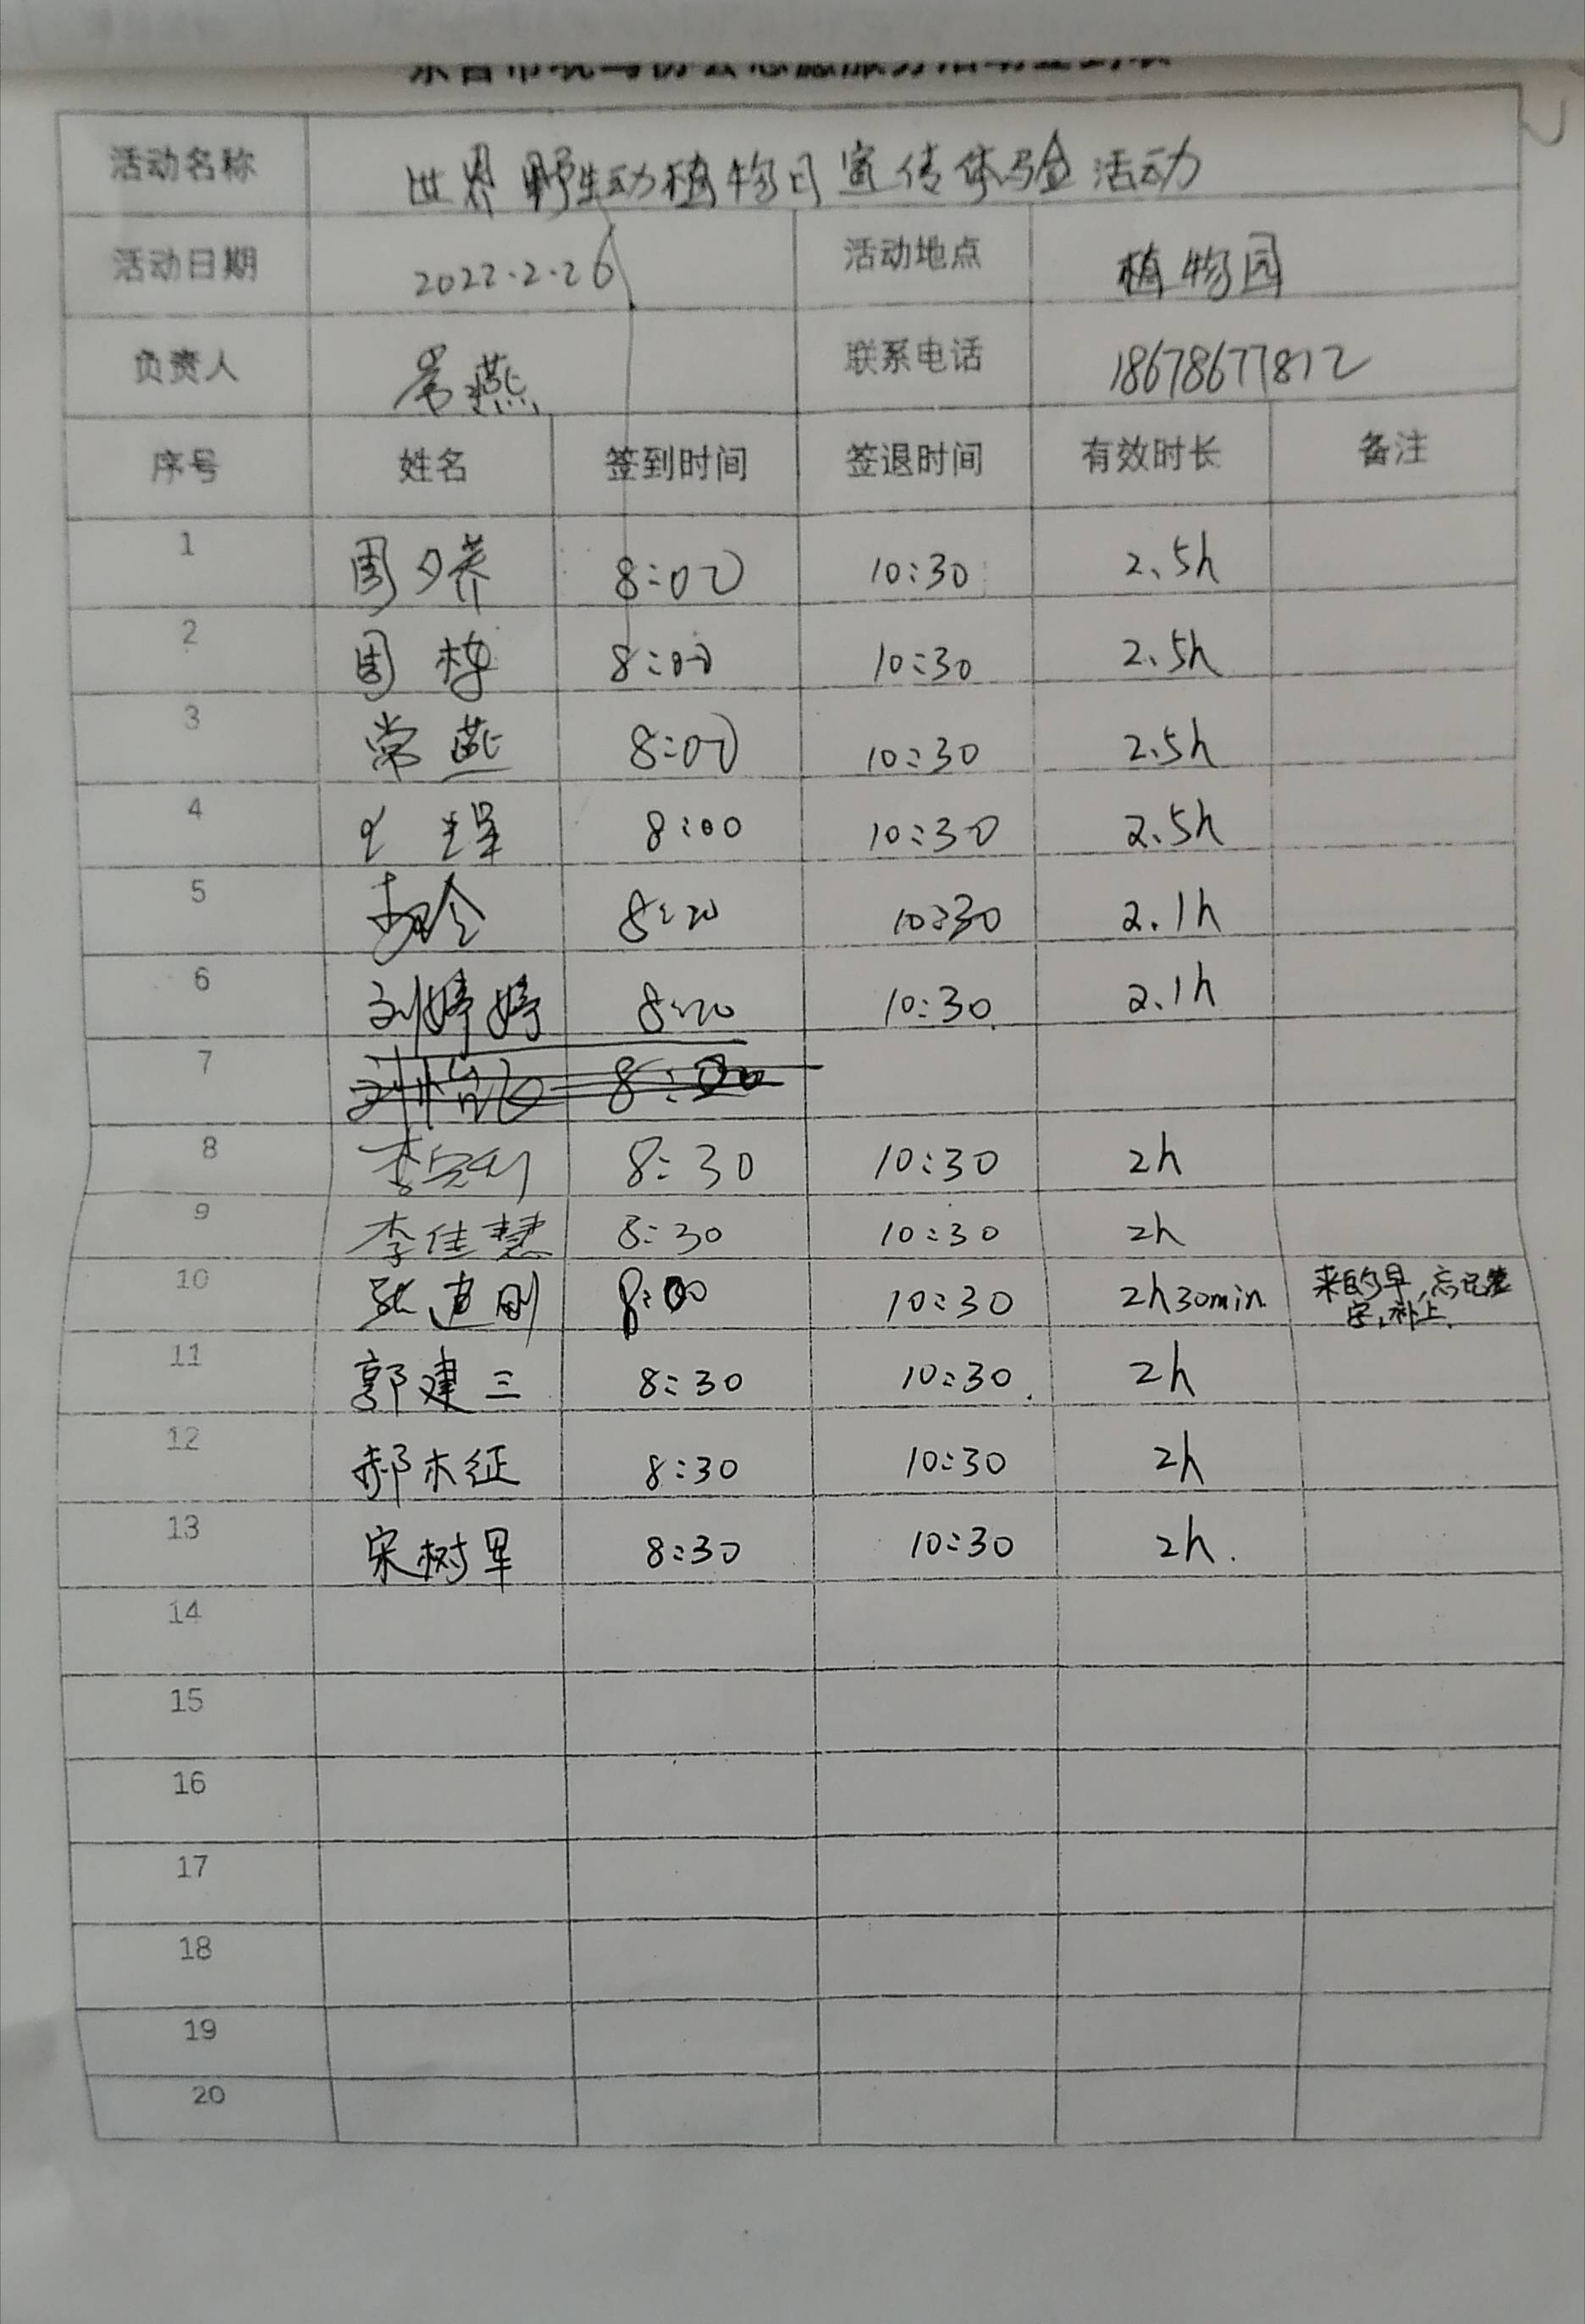 活动名称 世界野生动植物日宣传体验活动
活动日期 2022.2.26 活动地点 植物园
负责人 常燕 联系电话 18678677812
序号 姓名 签到时间 签退时间 有效时长 备注
1 周夕荞 8:00 10:30 2.5h
2 周栋 8:00 10:30 2.5h
3 常燕 8:00 10:30 2.5h
4 8:00 10:30 2.5h
5 8:20 10:30 2.1h
6 刘婷婷 8:20 10:30 2.1h
7 8:20
8 李 8:30 10:30 2h
9 李佳慧 8:30 10:30 2h
10 张建刚 8:00 10:30 2h30min 来的早,忘记签
字,补上.
11 郭建三 8:30 10:30 2h
12 郝木征 8:30 10:30 2h
13 宋树军 8:30 10:30 2h.
14
15
16
17
18
19
20